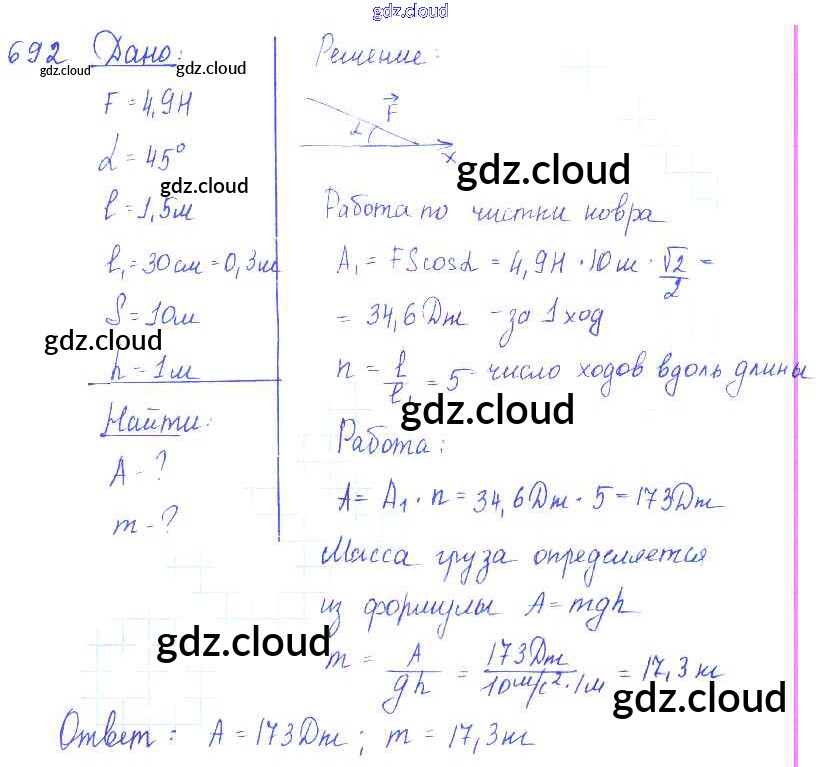 gdz.cloud
692 Дано:
gdz.cloud
gdz.cloud
F = 4,9Н
α = 45°
gdz.cloud
l = 1,5м
l₁ = 30см = 0,3м
S = 10м
gdz.cloud
h = 1м
Найти:
A - ?
m - ?
Решение:
F
α
x
gdz.cloud
Работа по чистки ковра
A₁ = FScosα = 4,9Н · 10м · √2/2 =
= 34,6Дж - за 1 ход
n = l/l₁ = 5 - число ходов вдоль длины
gdz.cloud
Работа:
A = A₁ · n = 34,6Дж · 5 = 173Дж
Масса груза определяется
из формулы A = mgh
gdz.cloud
m = A/gh = 173Дж/10м/с² · 1м = 17,3кг
gdz.cloud
Ответ: A = 173Дж; m = 17,3кг